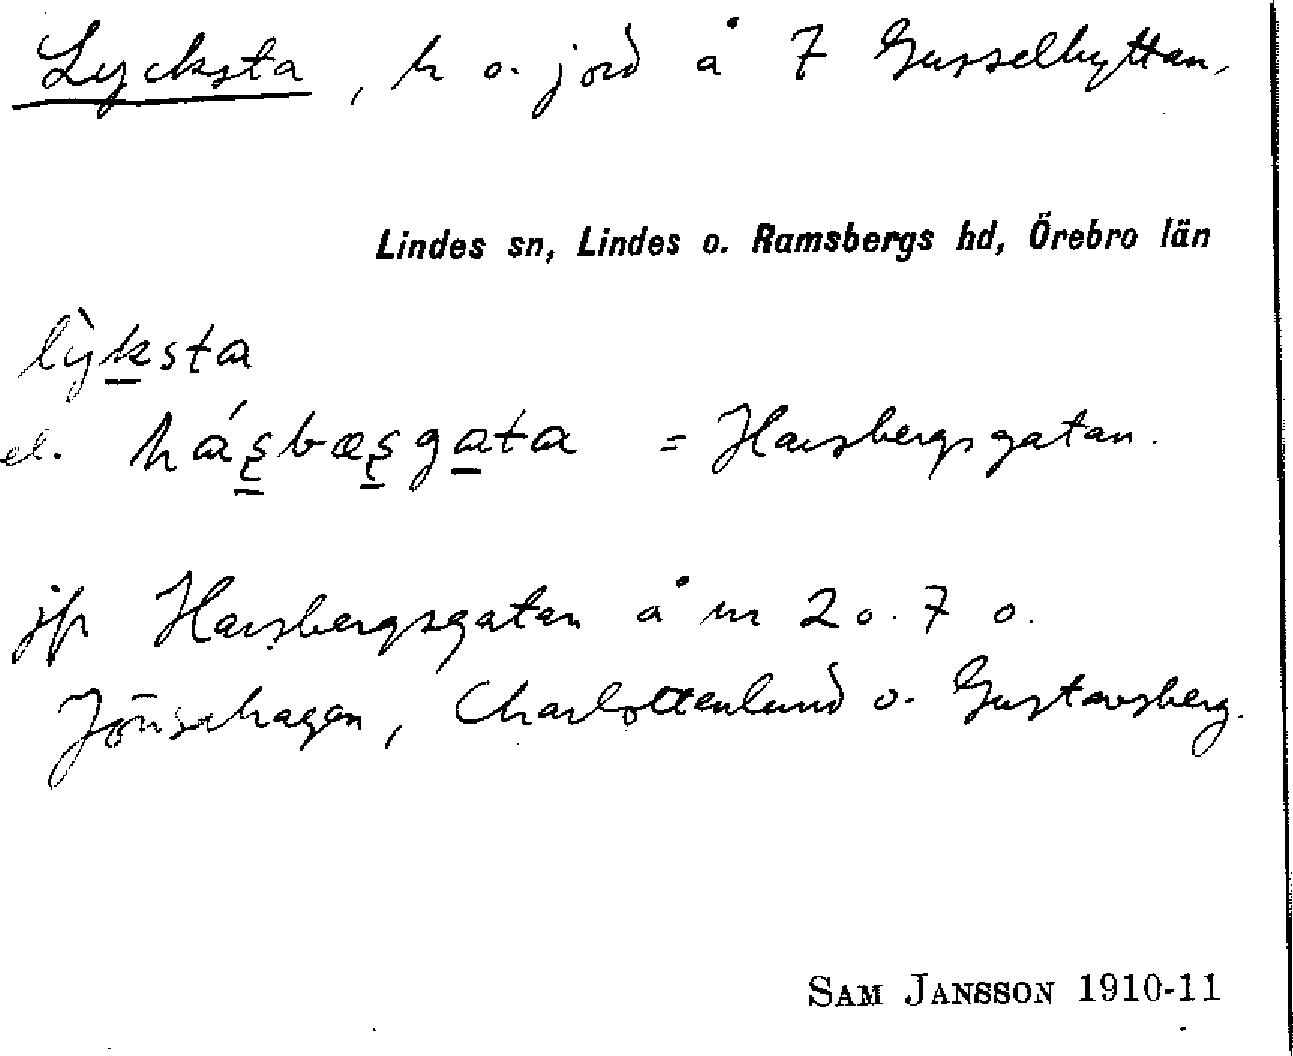 Lycksta, h o. jord å 7 Gusselhyttan,
Lindes sn, Lindes o. Ramsbergs hd, Örebro län
lỳksta
el. hásbæsgata = Harsbergsgatan.
jfr Harsbergsgatan å nr 2 o. 7 o.
Jönshagen, Charlottenlund o. Gustavsberg.
SAM JANSSON 1910-11